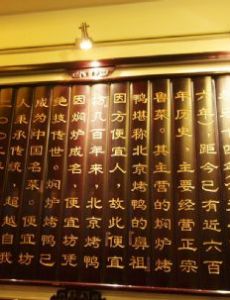 六年），距今已有近六百
年历史，主要经营正宗
鲁菜。其主营的焖炉烤
鸭堪称北京烤鸭的鼻祖
因方便宜人，故此便宜
坊几百年来，北京烤鸭
因焖炉成名，便宜坊凭
绝技传世。焖炉烤鸭已
成为中国名菜。便宜坊
人秉承传统，超越自我